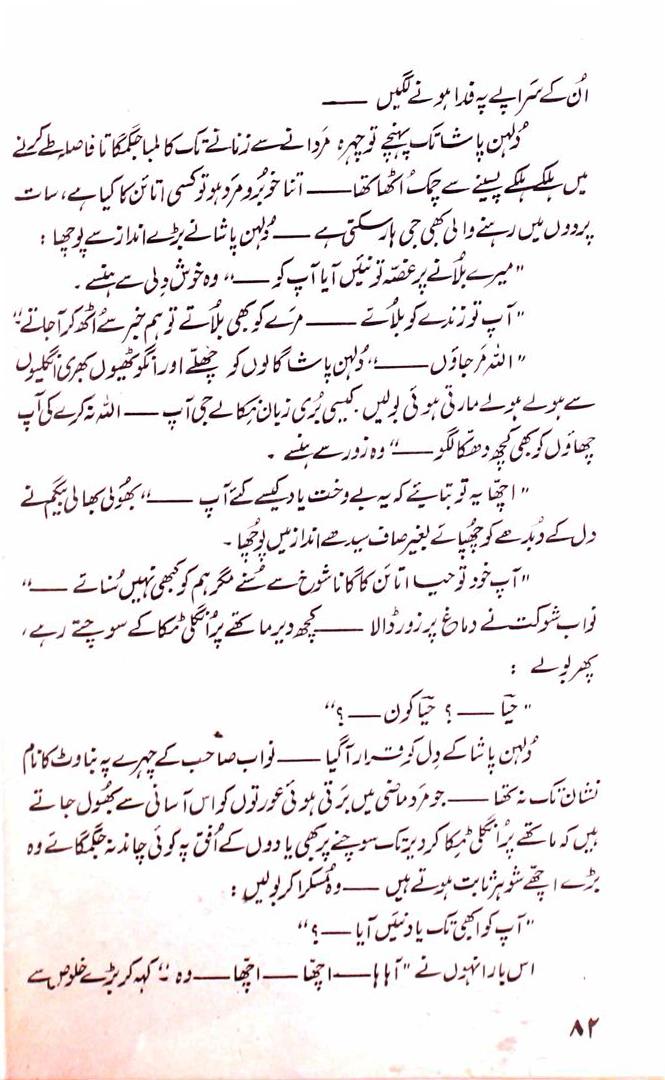 اُن کے سَراپے پہ فدا ہونے لگیں ——
دُلہن پاشا تک پہنچے تو چہرہ مَردانے سے زنانے تک کا لمبا جگمگاتا فاصلہ طے کرنے
میں ہلکے ہلکے پسینے سے چمک اُٹھا تھا —— اتنا خوبرو مرد ہو تو کسی اتائن کا کیا ہے، سات
پردوں میں رہنے والی بھی جی ہار سکتی ہے —— دُلہن پاشا نے بڑے انداز سے پوچھا :
"میرے بلانے پر غصّہ تو نئیں آیا آپ کو ——" وہ خوش دِلی سے ہنسے ۔
"آپ تو زندے کو بلاتے —— مرے کو بھی بلاتے تو ہم خبر سے اُٹھ کر آ جاتے"
"اللہ مَر جاؤں ——" دُلہن پاشا گالوں کو چھلّے اور انگوٹھیوں بھری انگلیوں
سے ہولے ہولے مارتی ہوئی بولیں۔ کیسی بُری زبان نکالے جی آپ —— اللہ نہ کرے کی آپ
چھاؤں کو بھی کچھ دھکّا لگو ——" وہ زور سے ہنسے ۔
"اچھا یہ تو بتائیے کہ یہ بے وخت یاد کیسے کئے آپ ——" بھولی بھالی بیگم نے
دل کے دُبدھے کو چھپائے بغیر صاف سیدھے انداز میں پوچھا ۔
"آپ خود تو حیا اتائن کا گانا شوخ سے سُنے مگر ہم کو کبھی نہیں سُناتے ——"
نواب شوکت نے دماغ پر زور ڈالا —— کچھ دیر ماتھے پر اُنگلی ٹِکا کے سوچتے رہے،
پھر بولے :
"حیّا —— ؟ حیّا کون —— ؟"
دُلہن پاشا کے دِل کو قرار آ گیا —— نواب صاحب کے چہرے پہ بناوٹ کا نام
نشان تک نہ تھا —— جو مرد ماضی میں بَرتی ہوئی عورتوں کو اس آسانی سے بھُول جاتے
ہیں کہ ماتھے پر اُنگلی ٹِکا کر دیر تک سوچنے پر بھی یادوں کے اُفق پہ کوئی چاند نہ جگمگائے وہ
بڑے اچھے شوہر ثابت ہوتے ہیں —— وہ مُسکرا کر بولیں :
"آپ کو ابھی تک یاد نئیں آیا —— ؟"
اس بار انہوں نے "آہا ہا —— اچھا —— اچھا —— وہ ۔" کہہ کر بڑے خلوص سے
۸۲